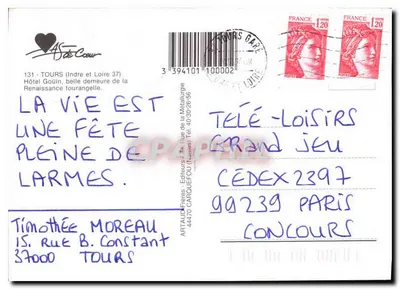 As de Cœur
131 - TOURS (Indre et Loire 37)
Hôtel Gouïn, belle demeure de la
Renaissance tourangelle.
LA VIE EST
UNE FÊTE
PLEINE DE
LARMES.
TIMOTHÉE MOREAU
15, RUE B. CONSTANT
37000 TOURS
3 394101 100002
ARTAUD Frères - Editeurs - Rue de la Métallurgie
44470 CARQUEFOU (Nantes) Tél. 40-30-26-56
TOURS GARE
FRANCE
1,20
FRANCE
1,20
TÉLÉ-LOISIRS
GRAND JEU
CEDEX 2397
99239 PARIS
CONCOURS